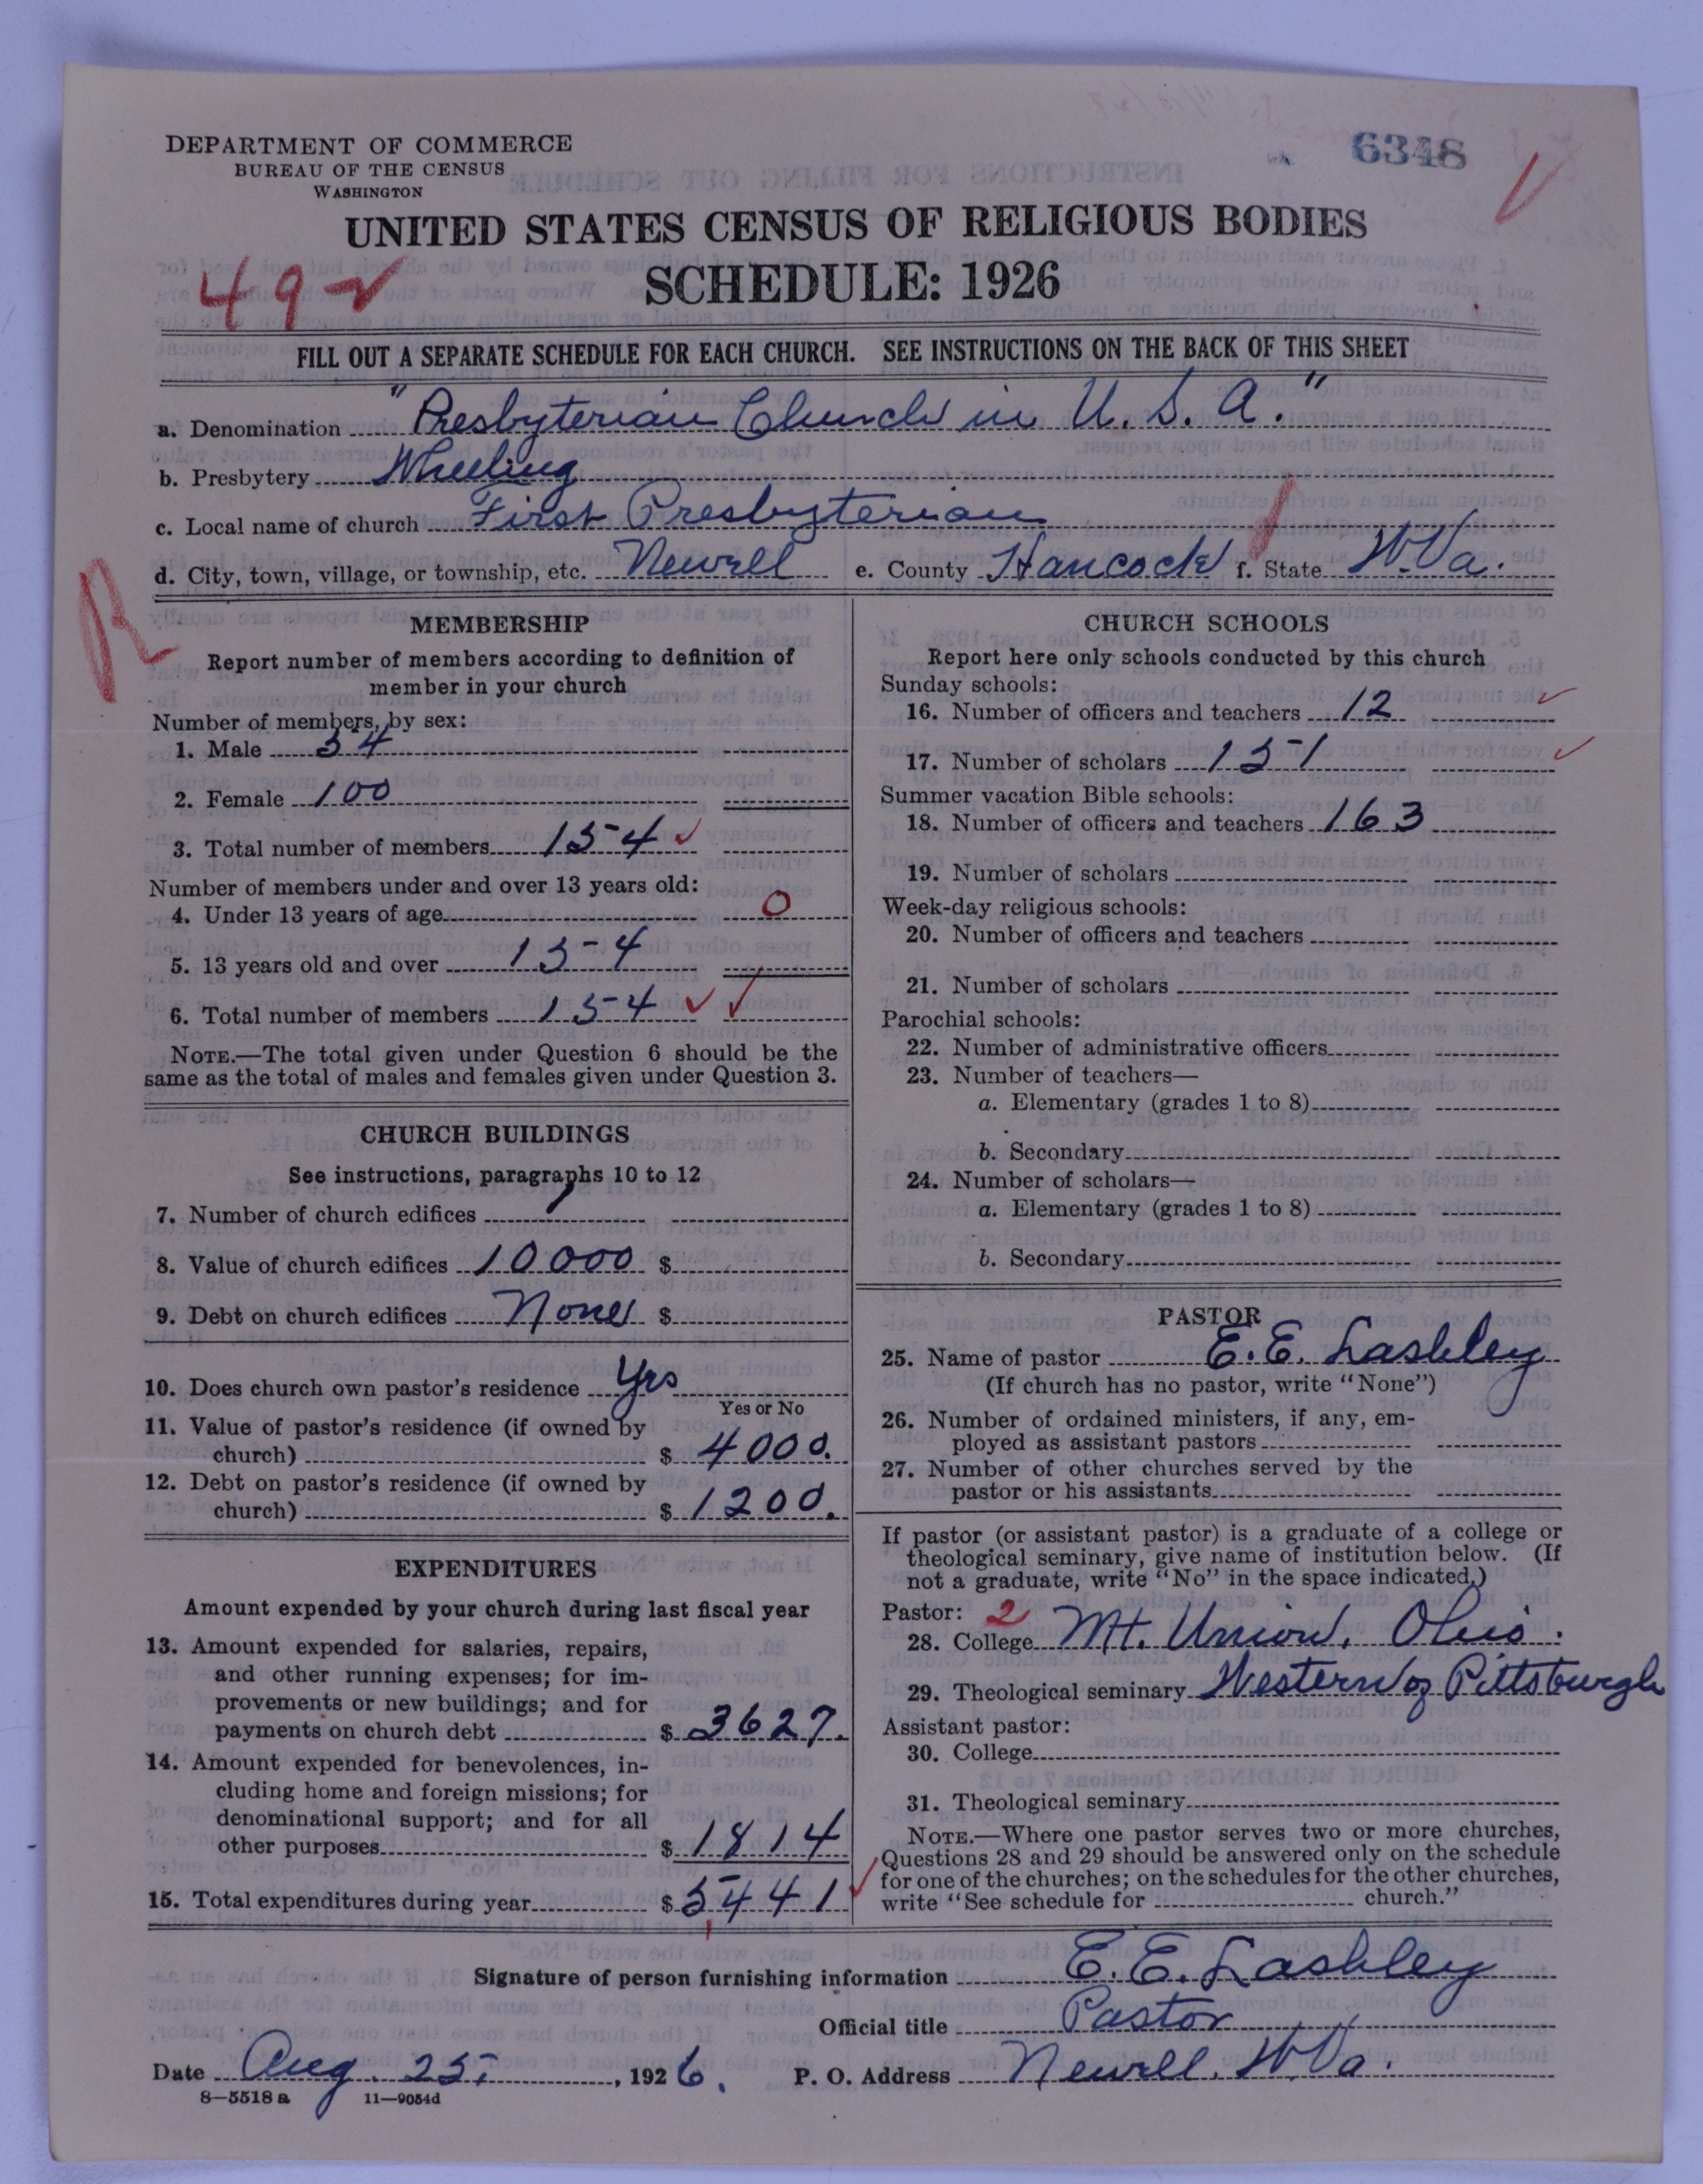 6348
DEPARTMENT OF COMMERCE
BUREAU OF THE CENSUS
WASHINGTON
UNITED STATES CENSUS OF RELIGIOUS BODIES
49
SCHEDULE: 1926
FILL OUT A SEPARATE SCHEDULE FOR EACH CHURCH. SEE INSTRUCTIONS ON THE BACK OF THIS SHEET
a. Denomination "Presbyterian Church in U.S.A."
b. Presbytery Wheeling
c. Local name of church First Presbyterian
d. City, town, village, or township, etc. Newell e. County Hancock f. State W.Va.
R
MEMBERSHIP
Report number of members according to definition of
member in your church
Number of members, by sex:
1. Male 54
2. Female 100
3. Total number of members 154
Number of members under and over 13 years old:
4. Under 13 years of age 0
5. 13 years old and over 154
6. Total number of members 154
NOTE.—The total given under Question 6 should be the
same as the total of males and females given under Question 3.
CHURCH BUILDINGS
See instructions, paragraphs 10 to 12
7. Number of church edifices 1
8. Value of church edifices 10000 $
9. Debt on church edifices None $
10. Does church own pastor's residence Yes
Yes or No
11. Value of pastor's residence (if owned by
church) $ 4000.
12. Debt on pastor's residence (if owned by
church) $ 1200.
EXPENDITURES
Amount expended by your church during last fiscal year
13. Amount expended for salaries, repairs,
and other running expenses; for im-
provements or new buildings; and for
payments on church debt $ 3627.
14. Amount expended for benevolences, in-
cluding home and foreign missions; for
denominational support; and for all
other purposes $ 1814
15. Total expenditures during year $ 5441
CHURCH SCHOOLS
Report here only schools conducted by this church
Sunday schools:
16. Number of officers and teachers 12
17. Number of scholars 151
Summer vacation Bible schools:
18. Number of officers and teachers 163
19. Number of scholars
Week-day religious schools:
20. Number of officers and teachers
21. Number of scholars
Parochial schools:
22. Number of administrative officers
23. Number of teachers—
a. Elementary (grades 1 to 8)
b. Secondary
24. Number of scholars—
a. Elementary (grades 1 to 8)
b. Secondary
PASTOR
25. Name of pastor E. E. Lashley
(If church has no pastor, write "None")
26. Number of ordained ministers, if any, em-
ployed as assistant pastors
27. Number of other churches served by the
pastor or his assistants
If pastor (or assistant pastor) is a graduate of a college or
theological seminary, give name of institution below. (If
not a graduate, write "No" in the space indicated.)
Pastor: 2
28. College Mt. Union, Ohio.
29. Theological seminary Western of Pittsburgh
Assistant pastor:
30. College
31. Theological seminary
NOTE.—Where one pastor serves two or more churches,
Questions 28 and 29 should be answered only on the schedule
for one of the churches; on the schedules for the other churches,
write "See schedule for church."
Signature of person furnishing information E. E. Lashley
Official title Pastor
Date Aug. 25, 1926. P. O. Address Newell, W.Va.
8—5518 a 11—9054d